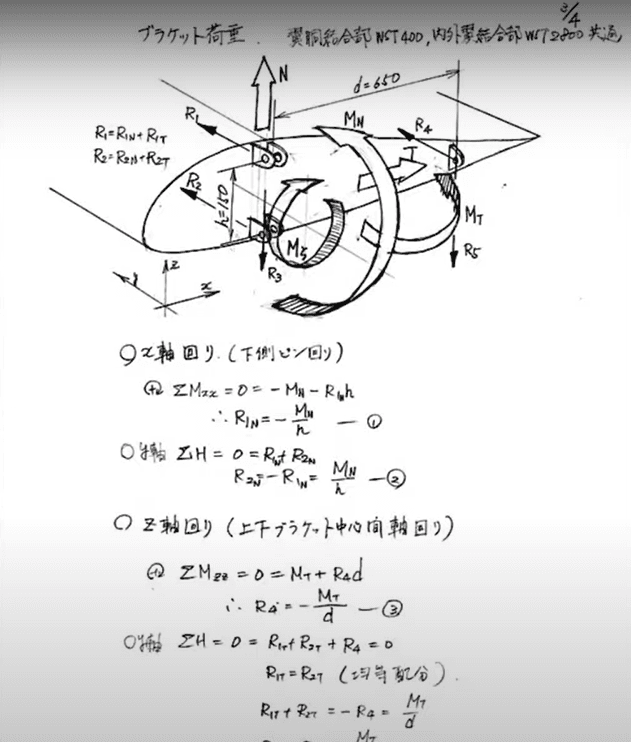 3/4
ブラケット荷重. 翼胴結合部 WST400, 内外翼結合部 WST2800 共通
N
d=650
R₁
M_N
R₄
R₁=R₁N+R₁T
R₂=R₂N+R₂T
T
R₂
h=150
M_T
Mζ
R₃
R₅
z
y
x
○ x軸回り. (下側ピン回り)
ΣMxx = 0 = -M_N - R₁N h
∴ R₁N = - M_N/h — ①
○ y軸 ΣH = 0 = R₁N + R₂N
R₂N = -R₁N = M_N/h — ②
○ z軸回り (上下ブラケット中心間軸回り)
ΣMzz = 0 = M_T + R₄d
∴ R₄ = - M_T/d — ③
○ y軸 ΣH = 0 = R₁T + R₂T + R₄ = 0
R₁T = R₂T (均等配分).
R₁T + R₂T = -R₄ = M_T/d
M_T